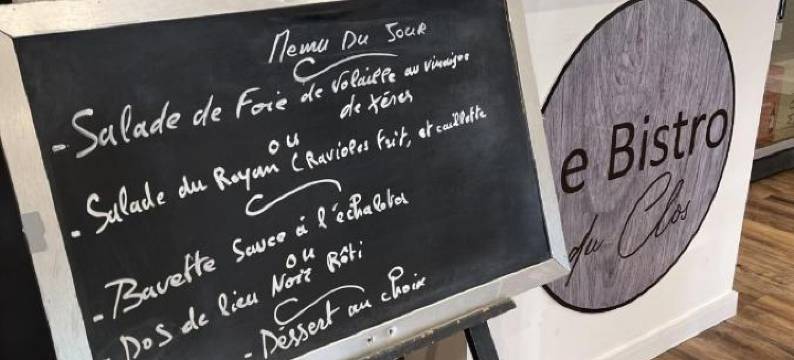 Menu Du Jour
- Salade de Foie de Volaille au vinaigre
de Xérès
ou
- Salade du Royan (Ravioles frit, et caillette
- Bavette Sauce à l'échalotes
ou
- Dos de lieu Noir Rôti
- Dessert au choix
e Bistro
du Clos